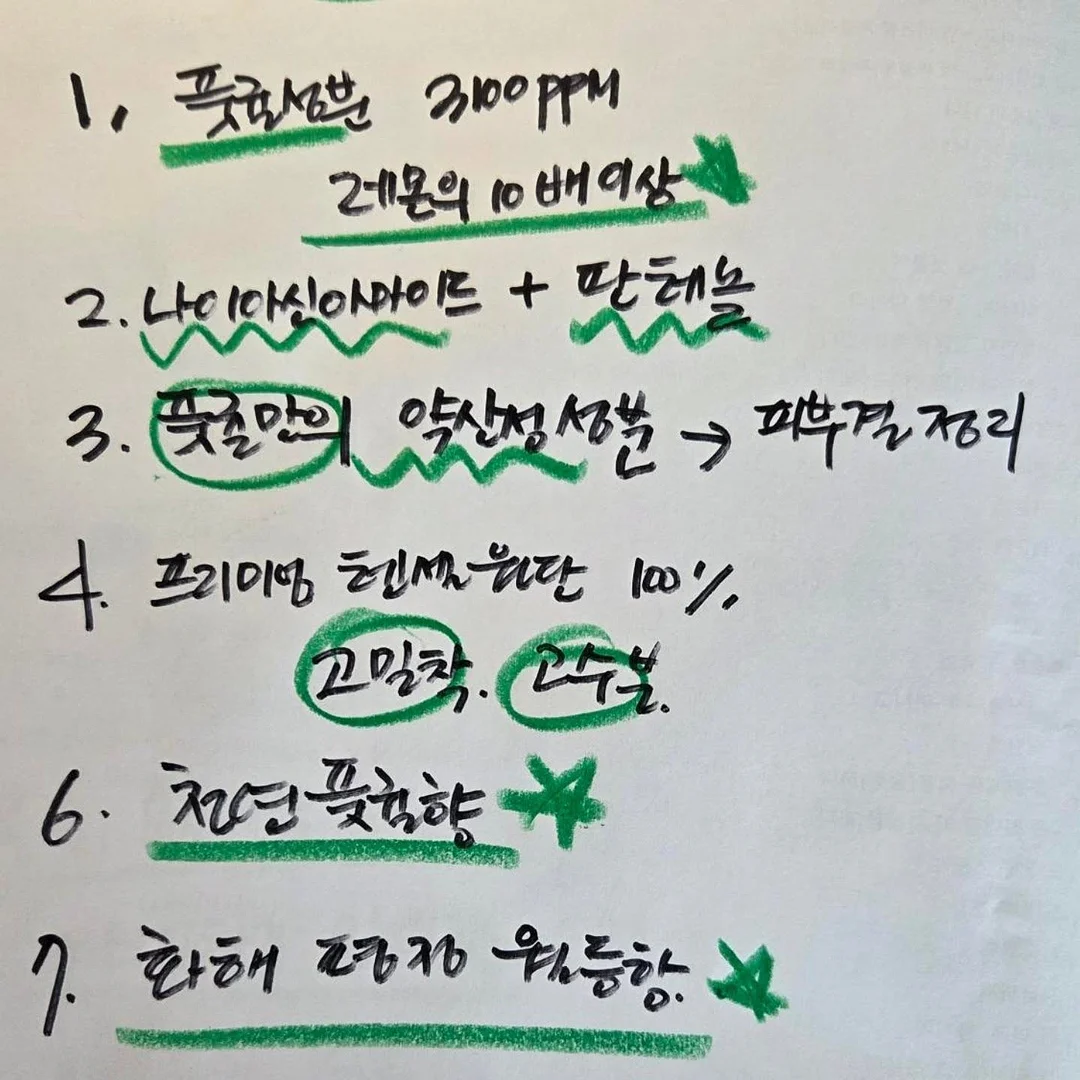 1. 풋귤성분 3100ppm
레몬의 10배 이상
2. 나이아신아마이드 + 판테놀
3. 풋귤만의 약산성 성분 → 피부결 정리
4. 프리미엄 텐셀 원단 100%
고밀착. 고수분.
6. 천연 풋귤향
7. 화해 평점 월등함.